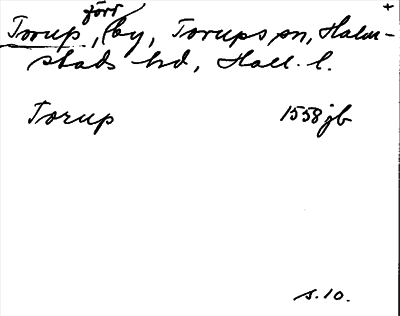 +
förr
Torup, by, Torups sn, Halm-
stads hd, Hall. l.
Torup 1558 jb
s. 10.